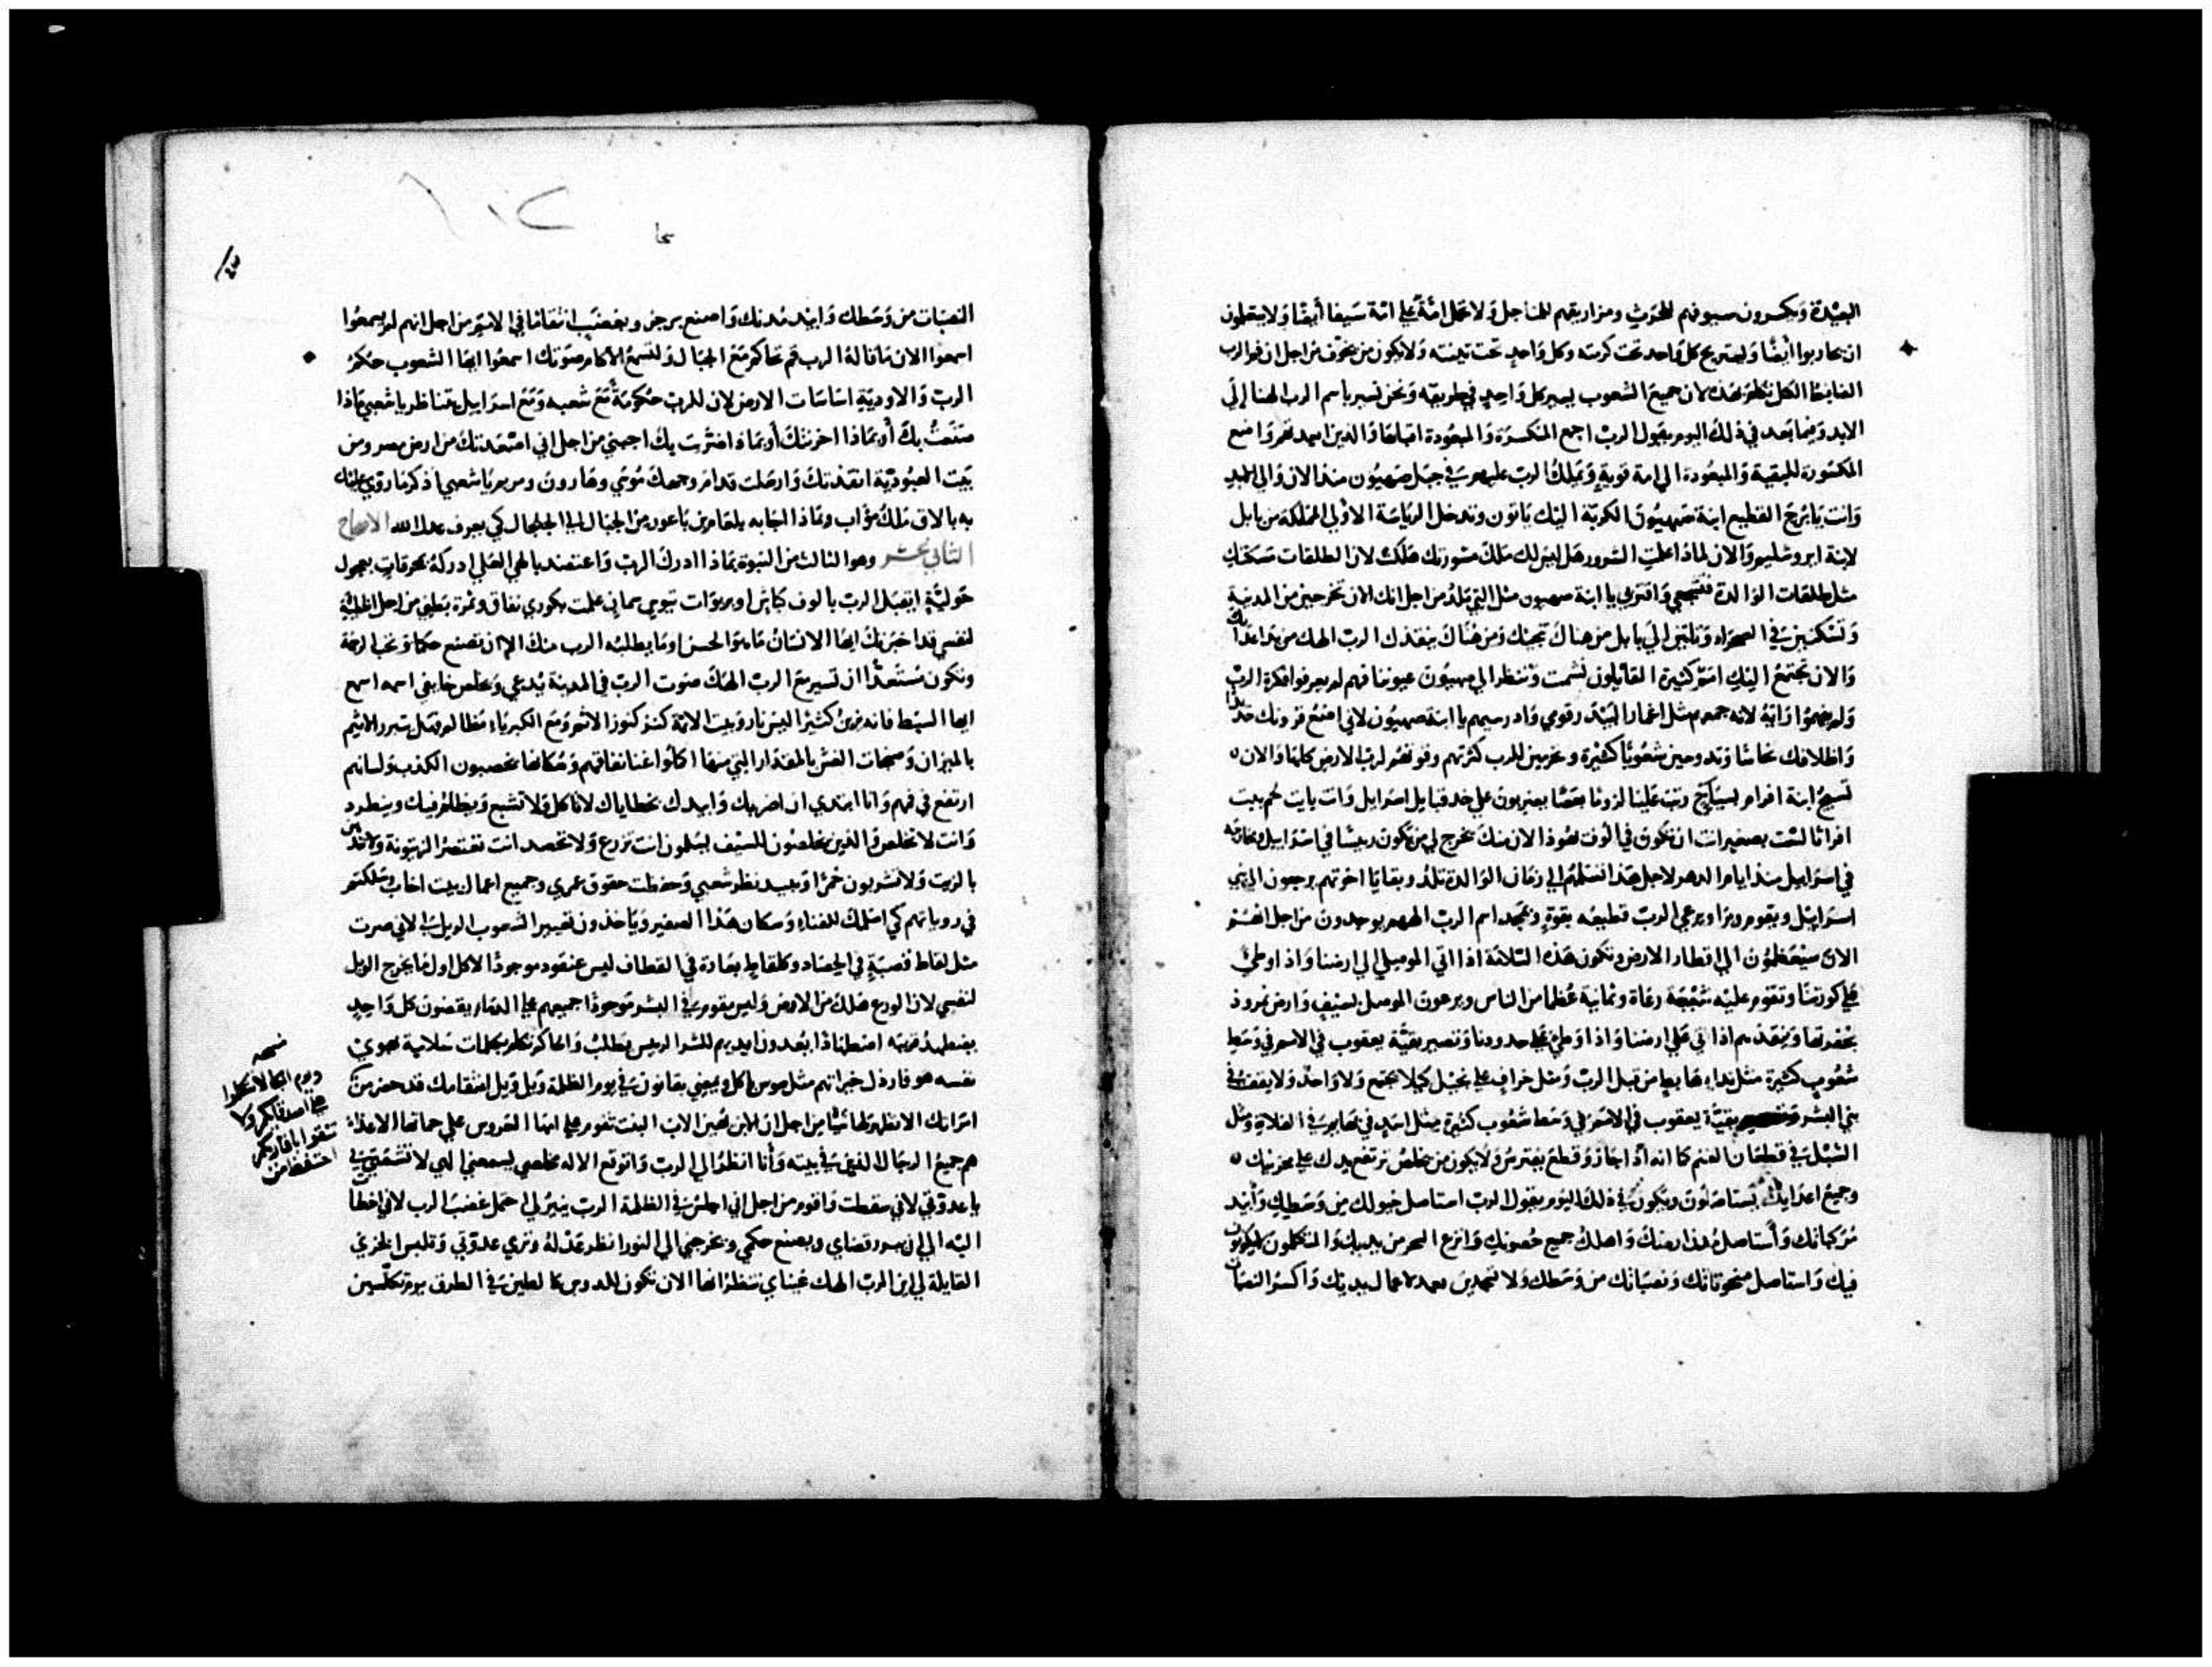 البعيدة ويكسرون سيوفهم للحرث ومزاريقهم للمناجل ولا تحمل امة على امة سيفا أيضا ولا يتعلمون
ان يحاربوا أيضا ويستريح كل واحد تحت كرمته وكل واحد تحت تينته ولا يكون من يخوف من اجل ان فم الرب
الضابط الكل تكلم بهذه لان جميع الشعوب يسير كل واحد في طريقه ونحن نسير باسم الرب الهنا إلى
الابد وفيما بعد في ذلك اليوم يقول الرب اجمع المنكسرة والمبعودة اقبلها والذين ابعدتهم واضع
المكسورة للبقية والمبعودة الى امة قوية ويملك الرب عليهم في جبل صهيون منذ الان والى الابد
وانت يا برج القطيع ابنة صهيون الكربة اليك ياتون وتدخل الرياسة الاولى المملكة من بابل
لابنة ايروشليم والان لماذا علمت الشرور هل ليس لك ملك مشورتك هلكت لان الطلقات مسكتك
مثل طلقات الوالدة فتجي واقتربي يا ابنة صهيون مثل التي تلد من اجل انك الان تخرجين من المدينة
وتسكنين في الصحراء وتاتين إلى بابل من هناك تنجيك ومن هناك ينقذك الرب الهك من يد اعدائك
والان تجتمع اليك امم كثيرة القائلون نشمت وتنظر الى صهيون عيوننا فهم لم يعرفوا فكرة الرب
ولم يفهموا رايه لانه جمعهم مثل اغمار البيدر قومي وادرسيهم يا ابنة صهيون لاني اضع قرونك حديدا
واظلافك نحاسا وتدوسين شعوبا كثيرة وتحرمين للرب كثرتهم وقوتهم لرب الارض كلها والان
تسيج ابنة افرام بسياج رتب علينا لزونا بعصا يضربون على خد قبايل اسرايل وانت يا بيت لحم بيت
افراثا لست بصغير انت ان تكون في الوف يهوذا لان منك يخرج لي من يكون رييسا في اسراييل مخارجه
في اسراييل منذ ايام الدهر لاجل هذا تسلمهم الى زمان الوالدة تلد وبقايا اخوتهم يرجعون الى بني
اسراييل ويقوم ويرا ويرعى الرب قطيعه بقوة وبمجد اسم الرب الههم يوجدون من اجل انهم
الان سيعظمون الى اقطار الارض وتكون هذه السلامة اذا اتى الموصلي إلى ارضنا واذا وطئ
على كورتنا وتقوم عليه سبعة رعاة وثمانية عظما من الناس ويرعون الموصل بسيف وارض نمرود
بحفرتها وينقذهم اذا اتى على ارضنا واذا وطئ على حدودنا وتصير بقية يعقوب في الامم في وسط
شعوب كثيرة مثل نداء هابط من قبل الرب ومثل خراف على نجيل كيلا يجتمع ولا واحد ولا يقف في
بني البشر وتصير بقية يعقوب في الامم في وسط شعوب كثيرة مثل اسد في بهايم في الغلاة ومثل
الشبل في قطعان الغنم كما انه اذا جاز وقطع يفترس ولا يكون من يخلص ترتفع يدك على محزنيك
وجميع اعدايك يستاصلون ويكون في ذلك اليوم يقول الرب استاصل خيولك من وسطك وأبيد
مركباتك وأستاصل مدن ارضك واهلك جميع حصونك وانزع السحر من يديك والمتكلمون لا يكونون
فيك واستاصل منحوتاتك ونصباتك من وسطك ولا تسجدين بعد لاعمال يديك واكسر النصبات
النصبات من وسطك وابيد مدنك واصنع برجز وبغضب انتقاما في الامم من اجل انهم لم يسمعوا
اسمعوا الان ما قاله الرب قم تحاكم مع الجبال ولتسمع الأكام صوتك اسمعوا ايها الشعوب حكم
الرب والاودية اساسات الارض لان للرب حكومة مع شعبه ومع اسراييل تتناظر يا شعبي ماذا
صنعت بك أو بماذا احزنتك أو بماذا اضررت بك اجبني من اجل اني اصعدتك من ارض مصر ومن
بيت العبودية انقذتك وارسلت قدام وجهك موسى وهارون ومريم يا شعبي اذكر ما روى عليك
به بالاق ملك مؤاب وماذا اجابه بلعام بن باعور من الجبال الى الجلجال كي يعرف عدل الله الاصحاح
الثاني عشر وهو الثالث من النبوة بماذا ادرك الرب واعتضد بالهي العلي ادركه بمحرقات بعجول
حولية ايقبل الرب بالوف كباش او بربوات تيوس سمان علمت بكوري نفاق وثمرة بطني من اجل اخطية
لنفسي قد اخبرتك ايها الانسان ما هو الحسن او ما يطلبه الرب منك الا ان تصنع حكما وتحب الرحمة
وتكون مستعدا ان تسير مع الرب الهك صوت الرب في المدينة يدعى ويخلص خايفي اسمه اسمع
ايها السبط فانه يزين كثيرا اليس نار وبيت الاثمة كنز كنوز الاثم ومع الكبرياء مظالم هل تبرر الاثيم
بالميزان وصنجات الغش بالمقدار التي منها اكلوا غنا نفاقهم وسكانها يخصبون الكذب ولسانهم
ارتفع في فمهم وانا ابتدي ان اضربك وابيدك بخطاياك لانك تاكل ولا تشبع ويظلم فيك وينطرد
وانت لا تخلص والذين يخلصون للسيف يسلمون انت تزرع ولا تحصد انت تعتصر الزيتونة ولا تدهن
بالزيت ولا تشربون خمرا ويبيد نظر شعبي وحفظت حقوق عمري وجميع اعمال بيت اخاب وسلكتم
في روياتهم كي اسلمك للفناء وسكان هذا الصفير وياخذون تعيير الشعوب الويل لي لاني صرت
مثل لقاط قصبة في الحصاد وكلقاط بعادة في القطاف ليس عنقود موجودا لاكل اول ما يخرج الويل
لنفسي لان الورع هلك من الارض وليس مقوم في البشر موجودا جميعهم على الدماء يقضون كل واحد
يضطهد قريبه اضطهادا يعدون ايديهم للشر الرييس يطلب والحاكم تكلم بكلمات سلامية هوى
نفسه هو فارذل خيراتهم مثل سوس ياكل ويمشي بقانون في يوم الظلمة ويل ويل انتقامك قد حضر من
امراتك الا تظهر لها شيا من اجل ان الابن يهين الاب البنت تقوم على امها العروس على حماتها الاعداء
هم جميع الرجال الذين في بيته وأنا انظر الى الرب واتوقع الاله مخلصي يسمعني الهي لا تشمتي بي
يا عدوتي لاني سقطت واقوم من اجل اني اجلس في الظلمة الرب ينير لي احمل غضب الرب لاني اخطأ
اليه الى ان يبرر قضاي ويصنع حكمي ويخرجني الى النور انظر عدله وترى عدوتي وتلبس الخزي
القايلة لي اين الرب الهك عيناي تنظرانها الان تكون للدوس كالطين في الطرق يوم تكلسين
نسخه
ويوم البكا لا تتكلوا
على اصدقايكم ولا
تتقوا باقاربكم
احتفظ من